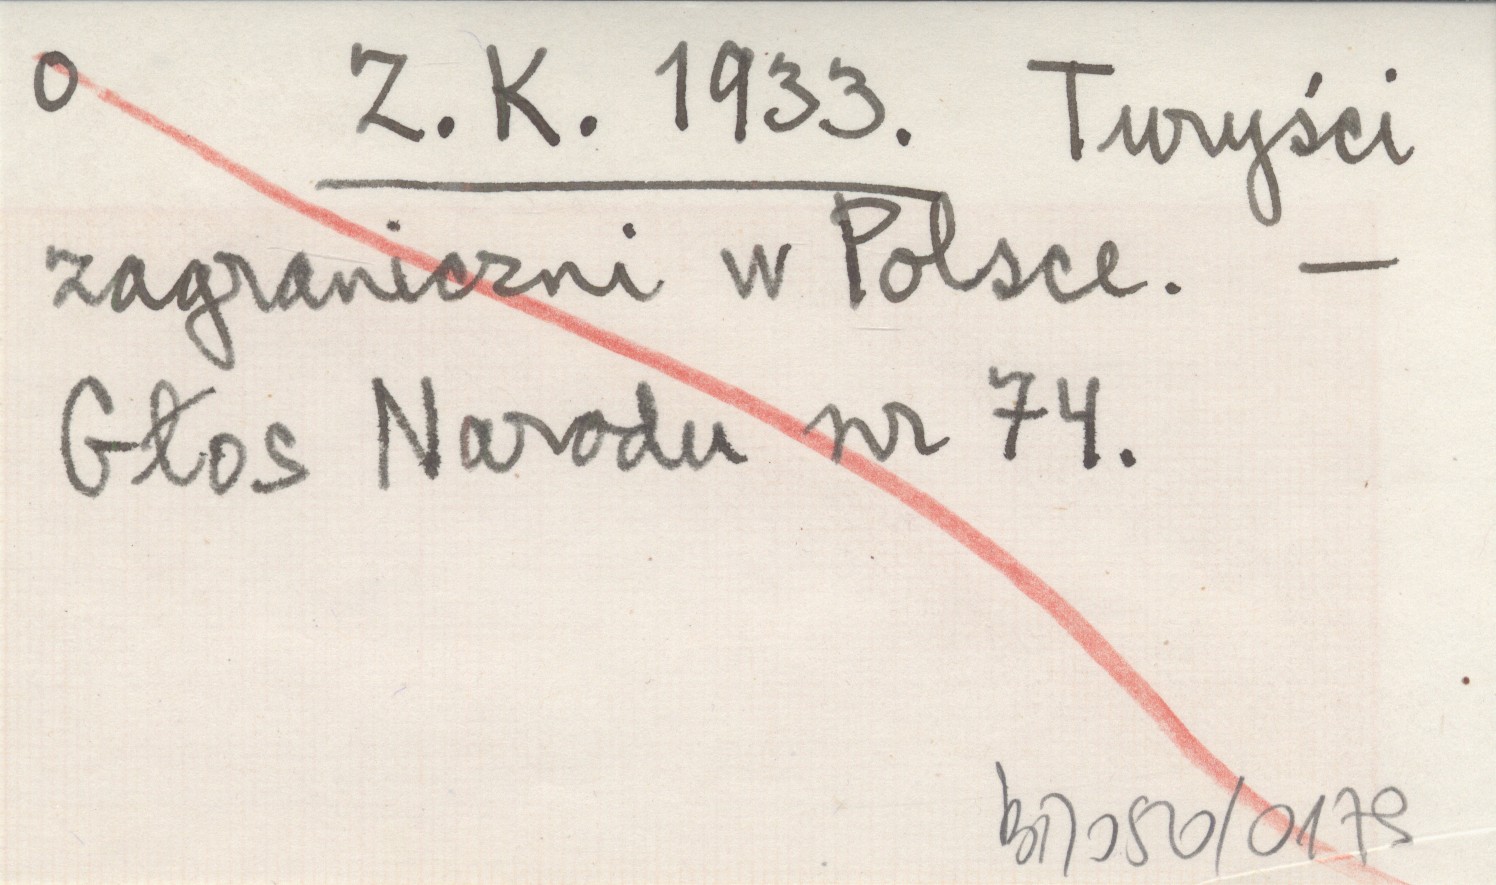 o Z.K. 1933. Turyści
zagraniczni w Polsce. —
Głos Narodu nr 74.